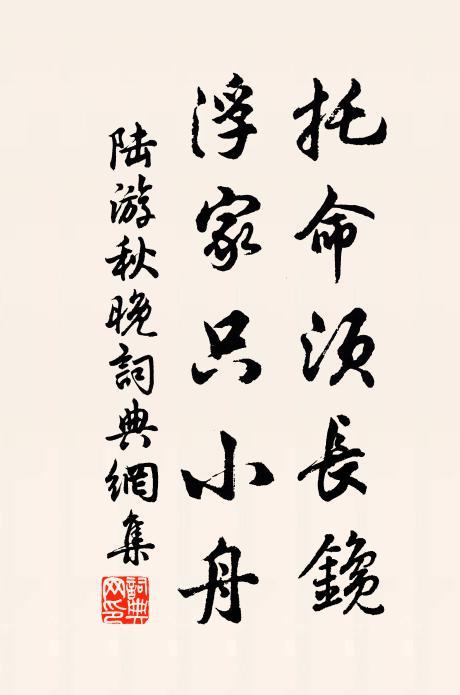 托命須長鑱
浮家只小舟
陸游秋晚詞典網集
詞典網印